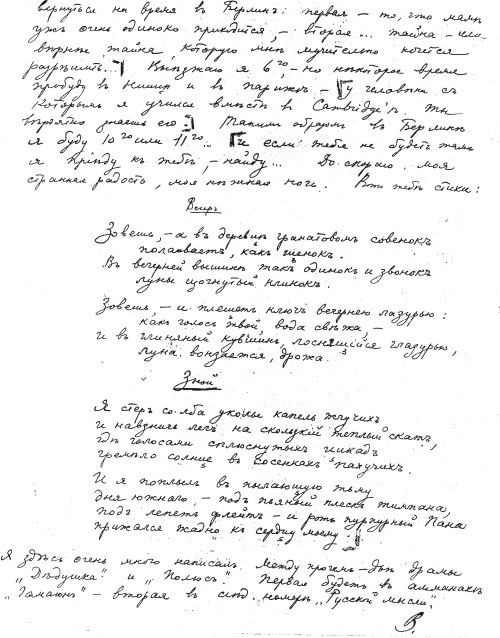 вернуться на время въ Берлинъ: первая – то, что мамѣ
ужъ очень одиноко придется, – вторая... тайна – изъ-
тайна которую мнѣ мучительно хочется
разрѣшить... Выѣзжаю я 6го, – но нѣкоторое время
пробуду въ Ниццѣ и въ Парижѣ – у человѣка съ
которымъ я учился вмѣстѣ въ Cambridge'ѣ. Ты
вѣроятно знаешь его. Такимъ образомъ въ Берлинѣ
я буду 10го или 11го.. И если тебя не будетъ тамъ
я приѣду къ тебѣ, – найду... До скораго моя
странная радость, моя нѣжная ночь. Вотъ тебѣ стихи:
Вечеръ
Зовешь, – а въ деревцѣ гранатовомъ совенокъ
полаиваетъ, какъ щенокъ.
Въ вечерней вышинѣ такъ одинокъ и звонокъ
луны изогнутый клинокъ.
Зовешь, – и плещетъ ключъ вечернею лазурью:
какъ голосъ твой, вода свѣжа, –
и въ глиняный кувшинъ, лоснящійся глазурью,
луна вонзается, дрожа.
Зной
Я стеръ со лба уколы капель жгучихъ
и навзничь легъ на скользкій теплый скатъ,
гдѣ голосами сплюснутыхъ цикадъ
гремѣло солнце въ сосенкахъ пахучихъ.
И я поплылъ въ пылающую тьму
дня южнаго, – подъ пьяный плескъ тимпана,
подъ лепетъ флейтъ – и ротъ пурпурный Пана
прижался жадно къ сердцу моему.
Я здѣсь очень много написалъ. Между прочимъ – двѣ драмы
„Дѣдушка" и „Полюсъ". Первая будетъ въ альманахѣ
„Гамаюнъ" – вторая въ слѣд. номерѣ „Русской мысли".
В.